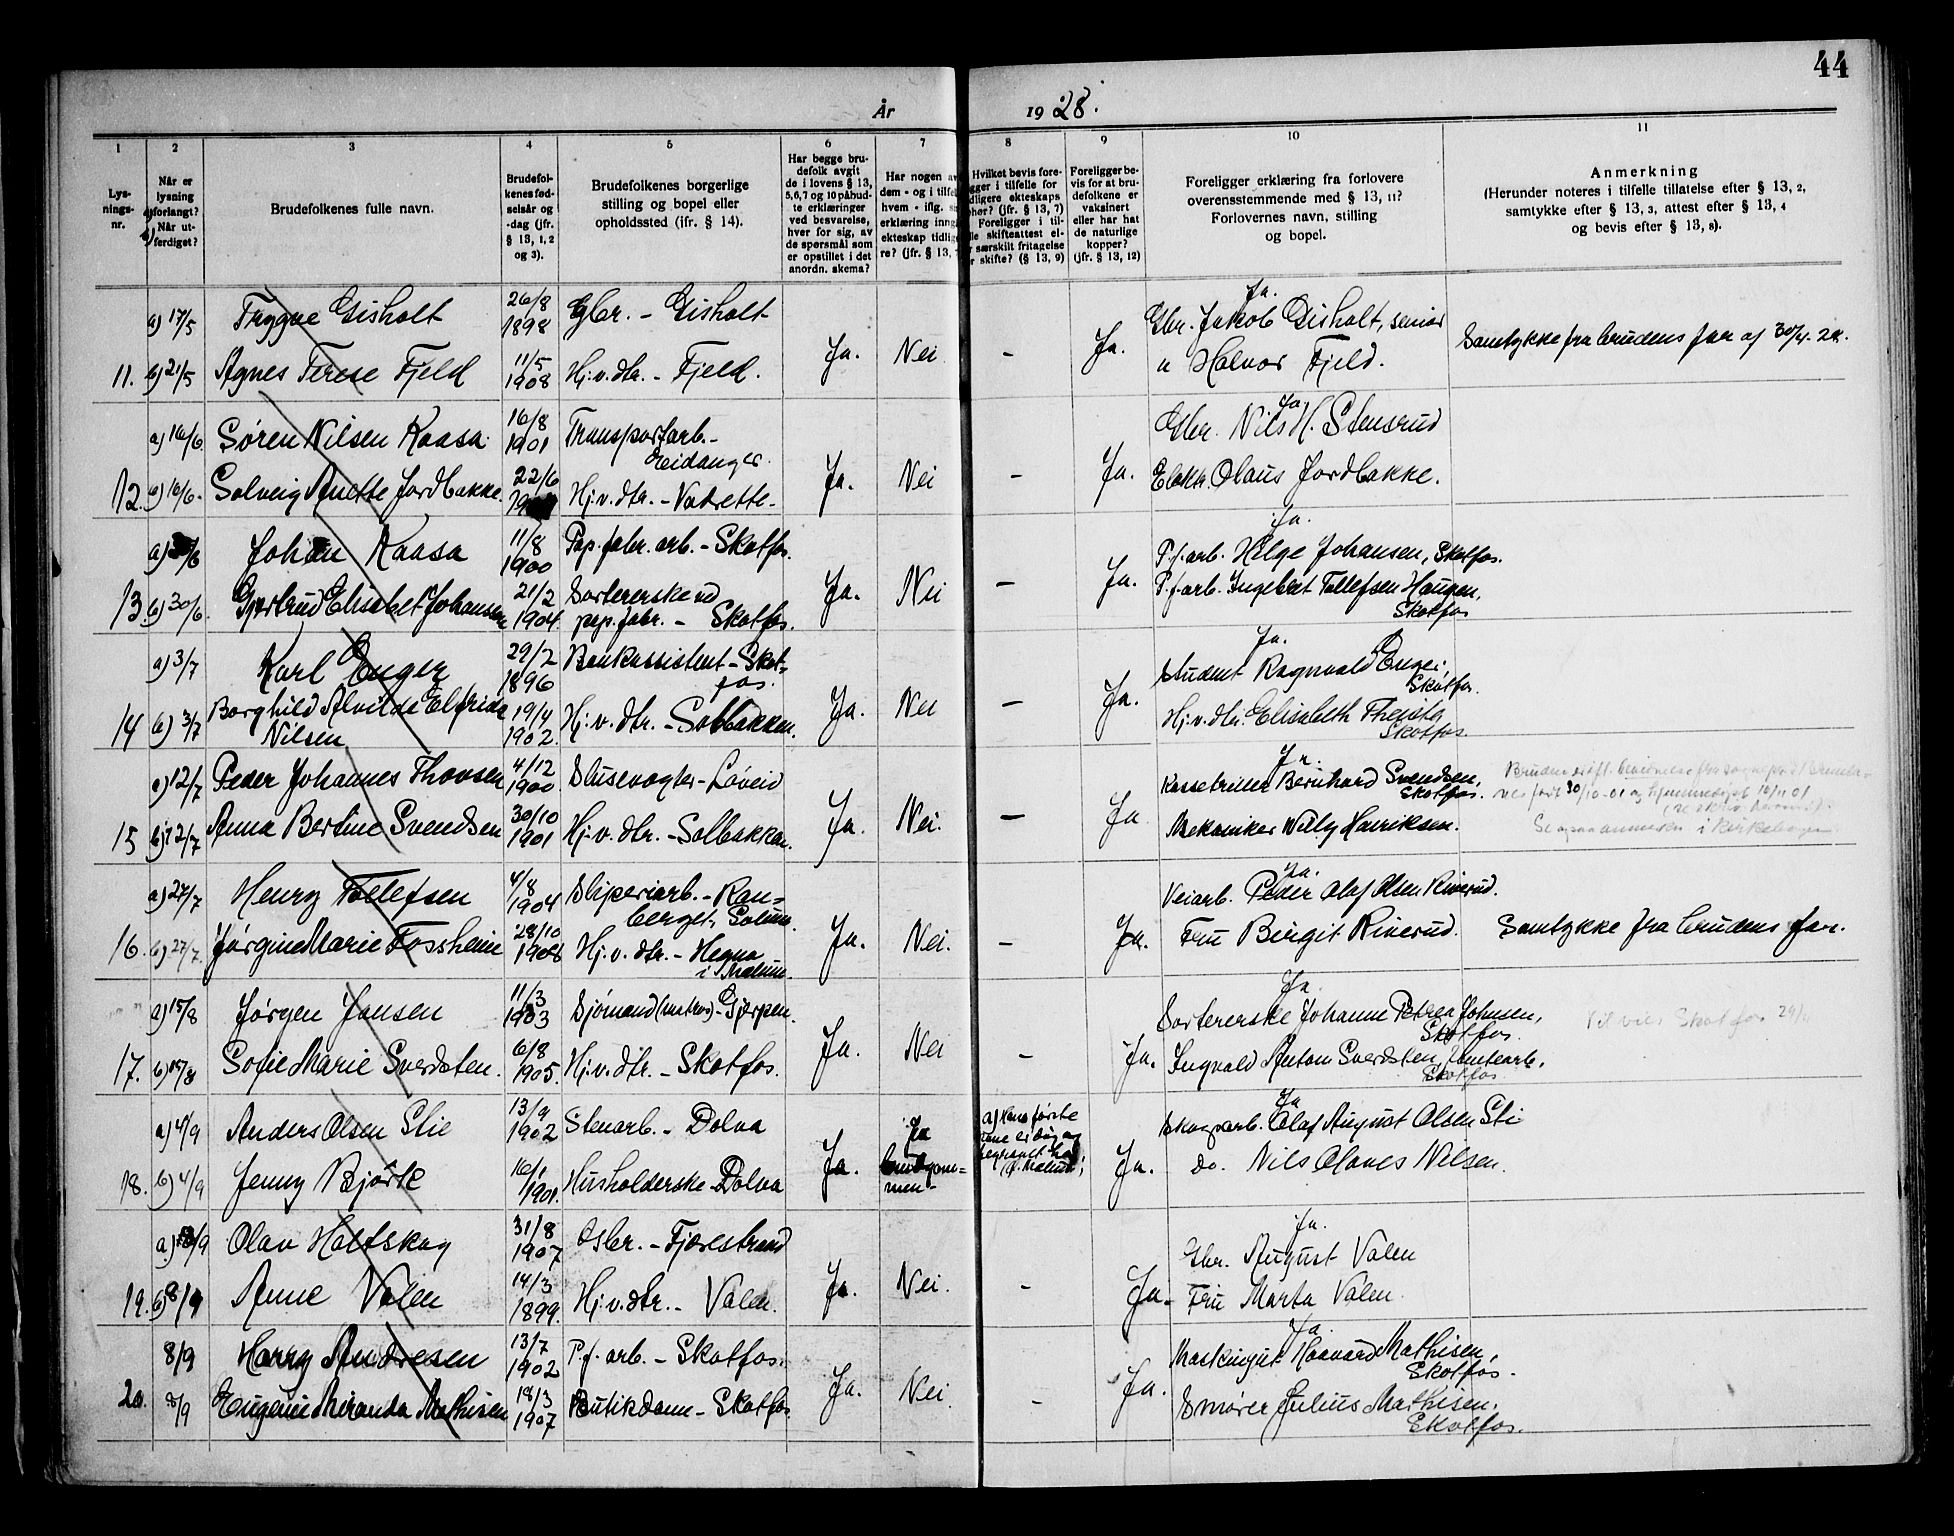 44
År 1928.
1 2 3 4 5 6 7 8 9 10 11
Lys-
nings-
nr.
Når er
lysning
a) forlangt?
b) Når ut-
ferdiget?
Brudefolkenes fulle navn.
Brudefol-
kenes fød-
selsår og
-dag (jfr.
§ 13, 1, 2
og 3).
Brudefolkenes borgerlige
stilling og bopel eller
opholdssted (ifr. § 14).
Har begge bru-
defolk avgit
de i lovens § 13,
5, 6, 7 og 10 påbud-
te erklæringer
ved besvarelse,
hver for sig, av
de spørsmål som
er opstillet i det
anordn. skema?
Har nogen av
dem - og i tilfel
hvem - iflg. si
erklæring inng
ekteskap tidlig
re? (jfr. § 13,
Hvilket bevis fore-
gger i tilfelle for
dligere ekteskaps
phør? (jfr. § 13, 7)
Foreligger i til-
lle skifteattest el-
r særskilt fritagelse
r skifte? (§ 13, 9)
Foreligger be-
vis for at bru-
defolkene er
vaksinert
eller har hat
de naturlige
kopper?
(jfr. § 13, 12)
Foreligger erklæring fra forlovere
overensstemmende med § 13, 11?
Forlovernes navn, stilling
og bopel.
Anmerkning
(Herunder noteres i tilfelle tillatelse efter § 13, 2,
samtykke efter § 13, 3, attest efter § 13, 4
og bevis efter § 13, 8).
a) 17/5 Trygve Gisholt 26/8 1898 Gbr. - Gisholt
11. b) 21/5 Agnes Terese Fjeld 11/5 1908 Hj.v. dtr. - Fjeld.
Ja. Nei - Ja.
Ja.
Gbr. Jakob Gisholt, senior
" Halvor Fjeld.
Samtykke fra brudens far af 30/4. 28.
a) 16/6 Søren Nilsen Kaasa. 16/8 1901 Transportarb. -
Eidanger.
12. b) 16/6. Solveig Anette Jordbakke. 22/6 Hj.v. dtr. - Vadrette -
Ja. Nei - Ja.
Ja
Gbr. Nils H. Stensrud
Elektr. Olaus Jordbakke.
a) /6 Johan Kaasa 11/8 1900 Pap. fabr. arb. - Skotfos.
13. b) 30/6. Gjertrud Elisabet Johansen 21/2 1904. Sortererske vd
pap. fabr. - Skotfos.
Ja. Nei - Ja.
Ja.
P.f. arb. Helge Johansen, Skotfos.
P.f. arb. Ingebret Tollefsen Haugen,
Skotfos
a) 3/7 Karl Enger 29/2 1896 Bankassistent - Skot-
fos.
14 b) 3/7 Borghild Alvilde Elfride
Nilsen 19/4 1902. Hj.v. dtr. - Solbakken.
Ja. Nei - Ja.
Ja.
Student Ragnvald Enger,
Skotfos.
Hj.v. dtr. Elisabeth
Skotfos.
a) 12/7 Peder Johannes Thovsen 4/12 1900 Slusevogter - Løveid
15 b) 12/7 Anna Bertine Svendsen 30/10 1901 Hj.v. dtr. - Solbakken.
Ja. Nei. - Ja
Ja.
Bernhard Svendsen,
Skotfos.
Mekaniker Willy Henriksen.
født 30/10-01 og hjemmedøpt
i kirkebogen
a) 27/7 Henry Tollefsen 4/8 1904 Sliperiarb. - Ran-
berget, Solum.
16. b) 27/7 Jørgine Marie Fossheim 28/10 1908 Hj.v. dtr. - Hegna
i Melum.
Ja. Nei. - Ja.
Ja.
Veiarb. Peder Olaf Olsen Riverud.
Fru Birgit Riverud.
Samtykke fra brudens far.
a) 15/8 Jørgen Jansen 11/3 1903 Sjømand (matros) - Gjerpen.
17. b) 15/8 Sofie Marie Sverdsten. 6/8 1905. Hj.v. dtr. - Skotfos.
Ja. Nei - Ja.
Ja.
Sortererske Johanne Petrea Johnsen,
Skotfos.
Ingvald Anton Sverdsten, tomtearb.,
Skotfos
Skotfos
a) 4/9 Anders Olsen Stie 13/9 1902 Stenarb. - Dolva
18. b) 4/9 Jenny Bjørk 16/1 1901. Husholderske - Dolva
Ja.
Ja
brudgom-
men -
a) Hans første
kone er død og
begravet
Ja.
Ja
Skogsarb. Olaf August Olsen Sti
do. Nils Olaves Nilsen.
a.) /9 Olav Holtskog 31/8 1907 Gbr. - Fjærestrand
19. b) 8/9 Anne Valen 14/3 1899. Hj.v. dtr. - Valen.
Ja. Nei. - Ja.
Ja.
Gbr. August Valen
Fru Marta Valen.
8/9 Harry Andresen 13/7 1902 P.f. arb. - Skotfos.
20. 8/9 Eugenie Miranda Mathisen 18/3 1907 Butikdame - Skotfos.
Ja. Nei - Ja.
Ja.
Maskingut Haavard Mathisen,
Skotfos.
Smører Julius Mathisen,
Skotfos.